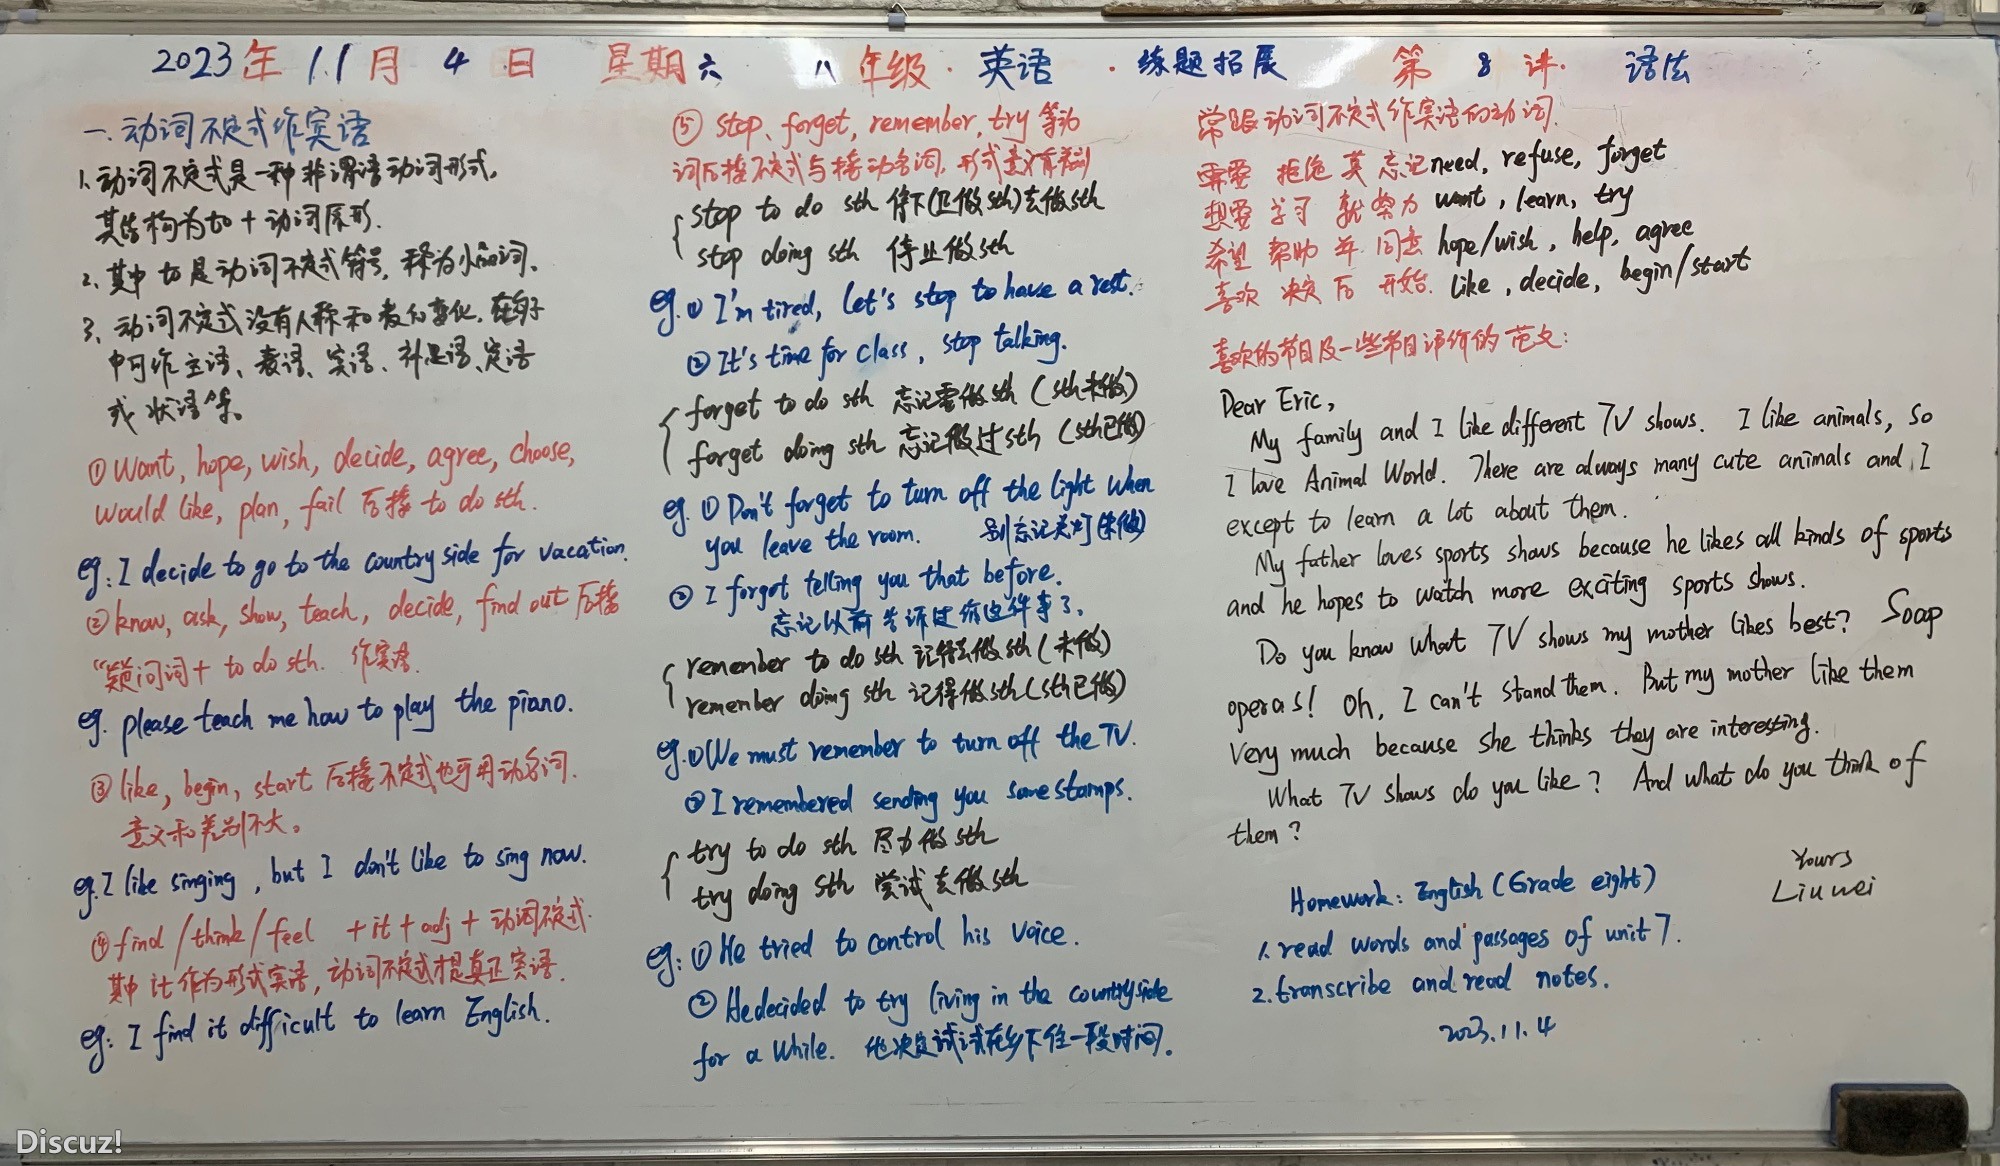 2023年 11月 4日 星期六 八年级·英语·练题拓展 第8讲·语法
一、动词不定式作宾语
1、动词不定式是一种非谓语动词形式,
其结构为to+动词原形.
2、其中to是动词不定式符号,称为小品词、
3、动词不定式没有人称和数的变化,在句子
中可作主语、表语、宾语、补足语、定语
或状语等。
①want, hope, wish, decide, agree, choose,
would like, plan, fail 后接 to do sth.
eg: I decide to go to the country side for vacation.
②know, ask, show, teach, decide, find out 后接
“疑问词+ to do sth. 作宾语.
eg. please teach me how to play the piano.
③like, begin, start 后接不定式也可用动名词.
意义和差别不大。
eg. I like singing, but I don't like to sing now.
④find/think/feel +it+adj+动词不定式.
其中it作为形式宾语,动词不定式才是真正宾语.
eg: I find it difficult to learn English.
⑤ stop, forget, remember, try 等动
词后接不定式与接动名词,形式意义有差别
stop to do sth 停下(正做sth)去做sth
stop doing sth 停止做sth
eg.① I'm tired, let's stop to have a rest.
② It's time for class, stop talking.
forget to do sth 忘记需做sth (sth未做)
forget doing sth 忘记做过sth (sth已做)
eg. ① Don't forget to turn off the light when
you leave the room. 别忘记关灯(未做)
② I forgot telling you that before.
忘记以前告诉过你这件事了.
remember to do sth 记得去做sth(未做)
remember doing sth 记得做sth(sth已做)
eg.①We must remember to turn off the TV.
②I remembered sending you some stamps.
try to do sth 尽力做sth
try doing sth 尝试去做sth
eg: ① He tried to control his voice.
② He decided to try living in the countryside
for a while. 他决定试试在乡下住一段时间.
常跟动词不定式作宾语的动词.
需要 拒绝 莫 忘记 need, refuse, forget
想要 学习 就 努力 want, learn, try
希望 帮助 并 同意 hope/wish, help, agree
喜欢 决定 后 开始. like, decide, begin/start
喜欢的节目及一些节目评价的范文:
Dear Eric,
My family and I like different TV shows. I like animals, so
I love Animal World. There are always many cute animals and I
except to learn a lot about them.
My father loves sports shows because he likes all kinds of sports
and he hopes to watch more exciting sports shows.
Do you know what TV shows my mother likes best? Soap
operas! Oh, I can't stand them. But my mother like them
very much because she thinks they are interesting.
What TV shows do you like? And what do you think of
them?
Yours
Liu wei
Homework: English (Grade eight)
1. read words and passages of unit 7.
2. transcribe and read notes.
2023.11.4
Discuz!